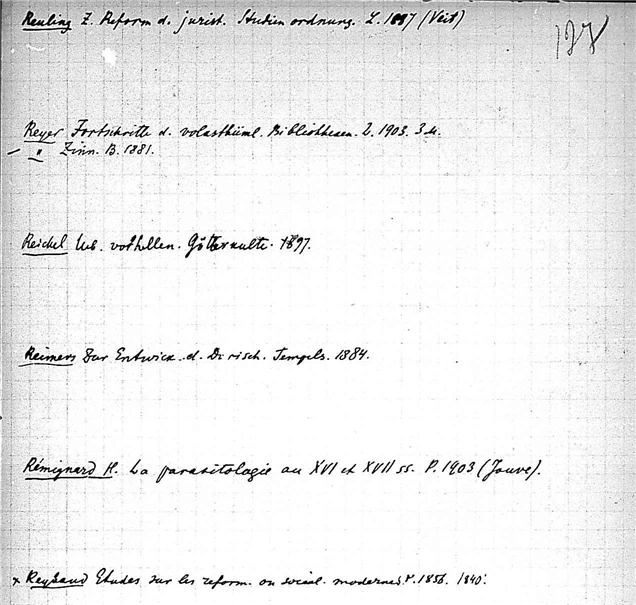 Reuling Z. Reform d. jurist. Studienordnung. L. 1887 (Veit)
127
Reyer Fortschritte d. volkstüml. Bibliotheken. L. 1903. 3 M.
– " Zinn. B. 1881.
Reichel Ueb. vorhellen. Götterkulte. 1897.
Reimers Zur Entwick. d. Dorisch. Tempels. 1884.
Rémignard H. La parasitologie au XVI et XVII ss. P. 1903 (Jouve).
x Reybaud Etudes sur les reform. ou social. modernes. P. 1856. 1840.